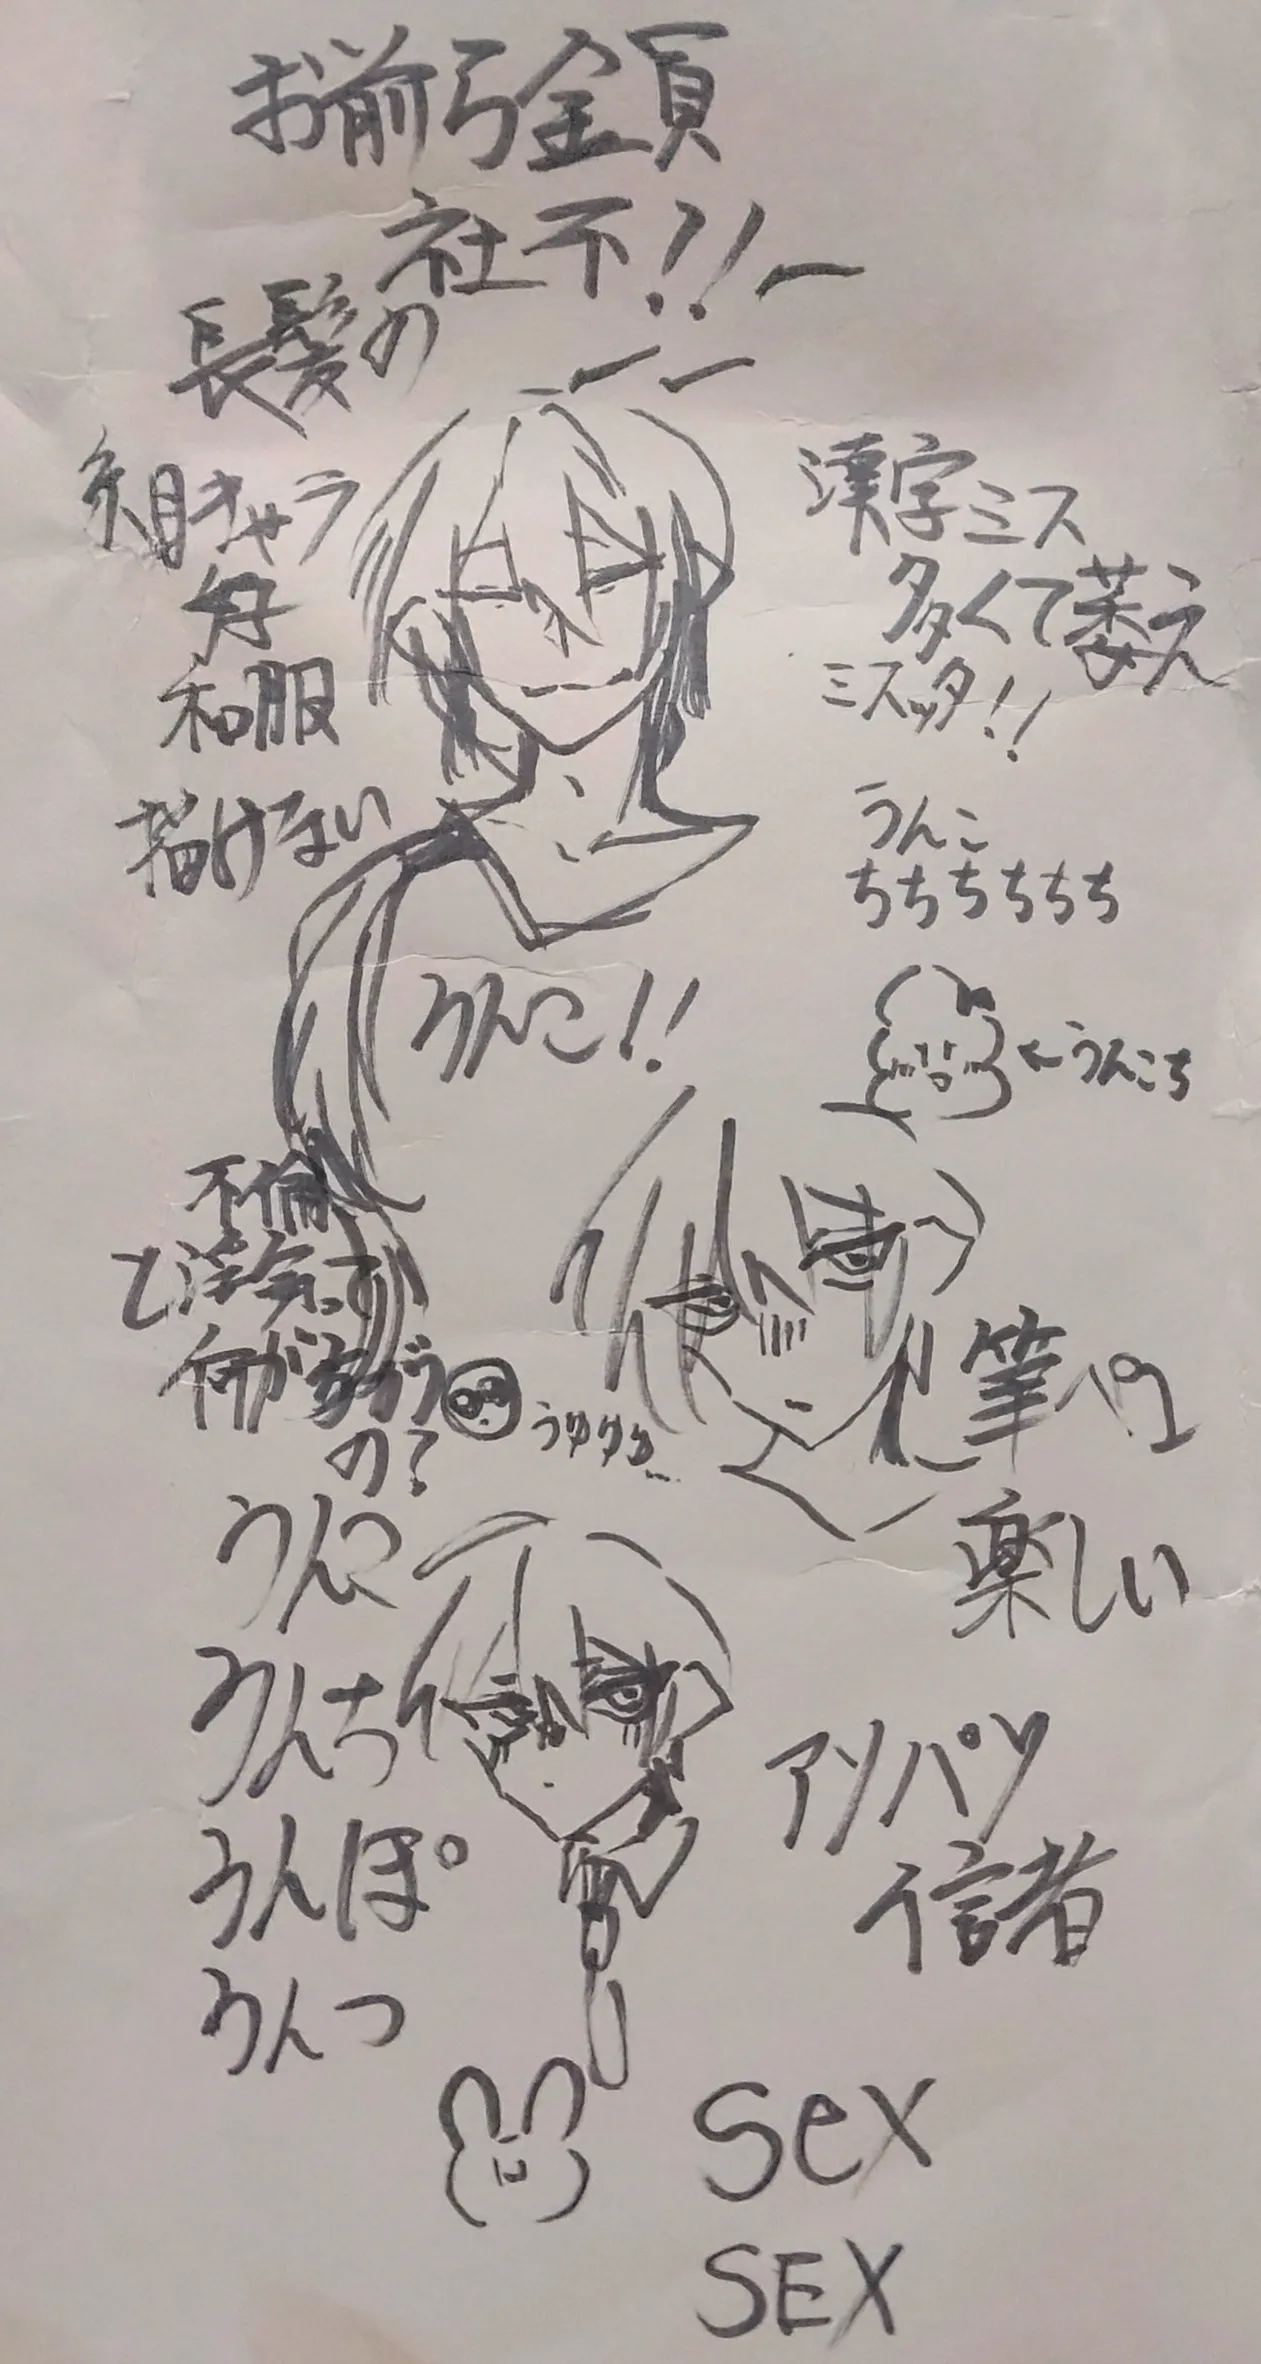 お前弓金頁
社不!!
長髪の
糸目キャラ
好
和服
描けない
漢字ミス
多くて萎え
ミスッタ!!
うんこ
ちちちちちち
うんこ!!
←うんこち
不倫
と浮気って
何がちがう
の?
筆ペン
楽しい
うんこ
うんち
うんぽ
うんつ
アソパソ
信者
sex
SEX